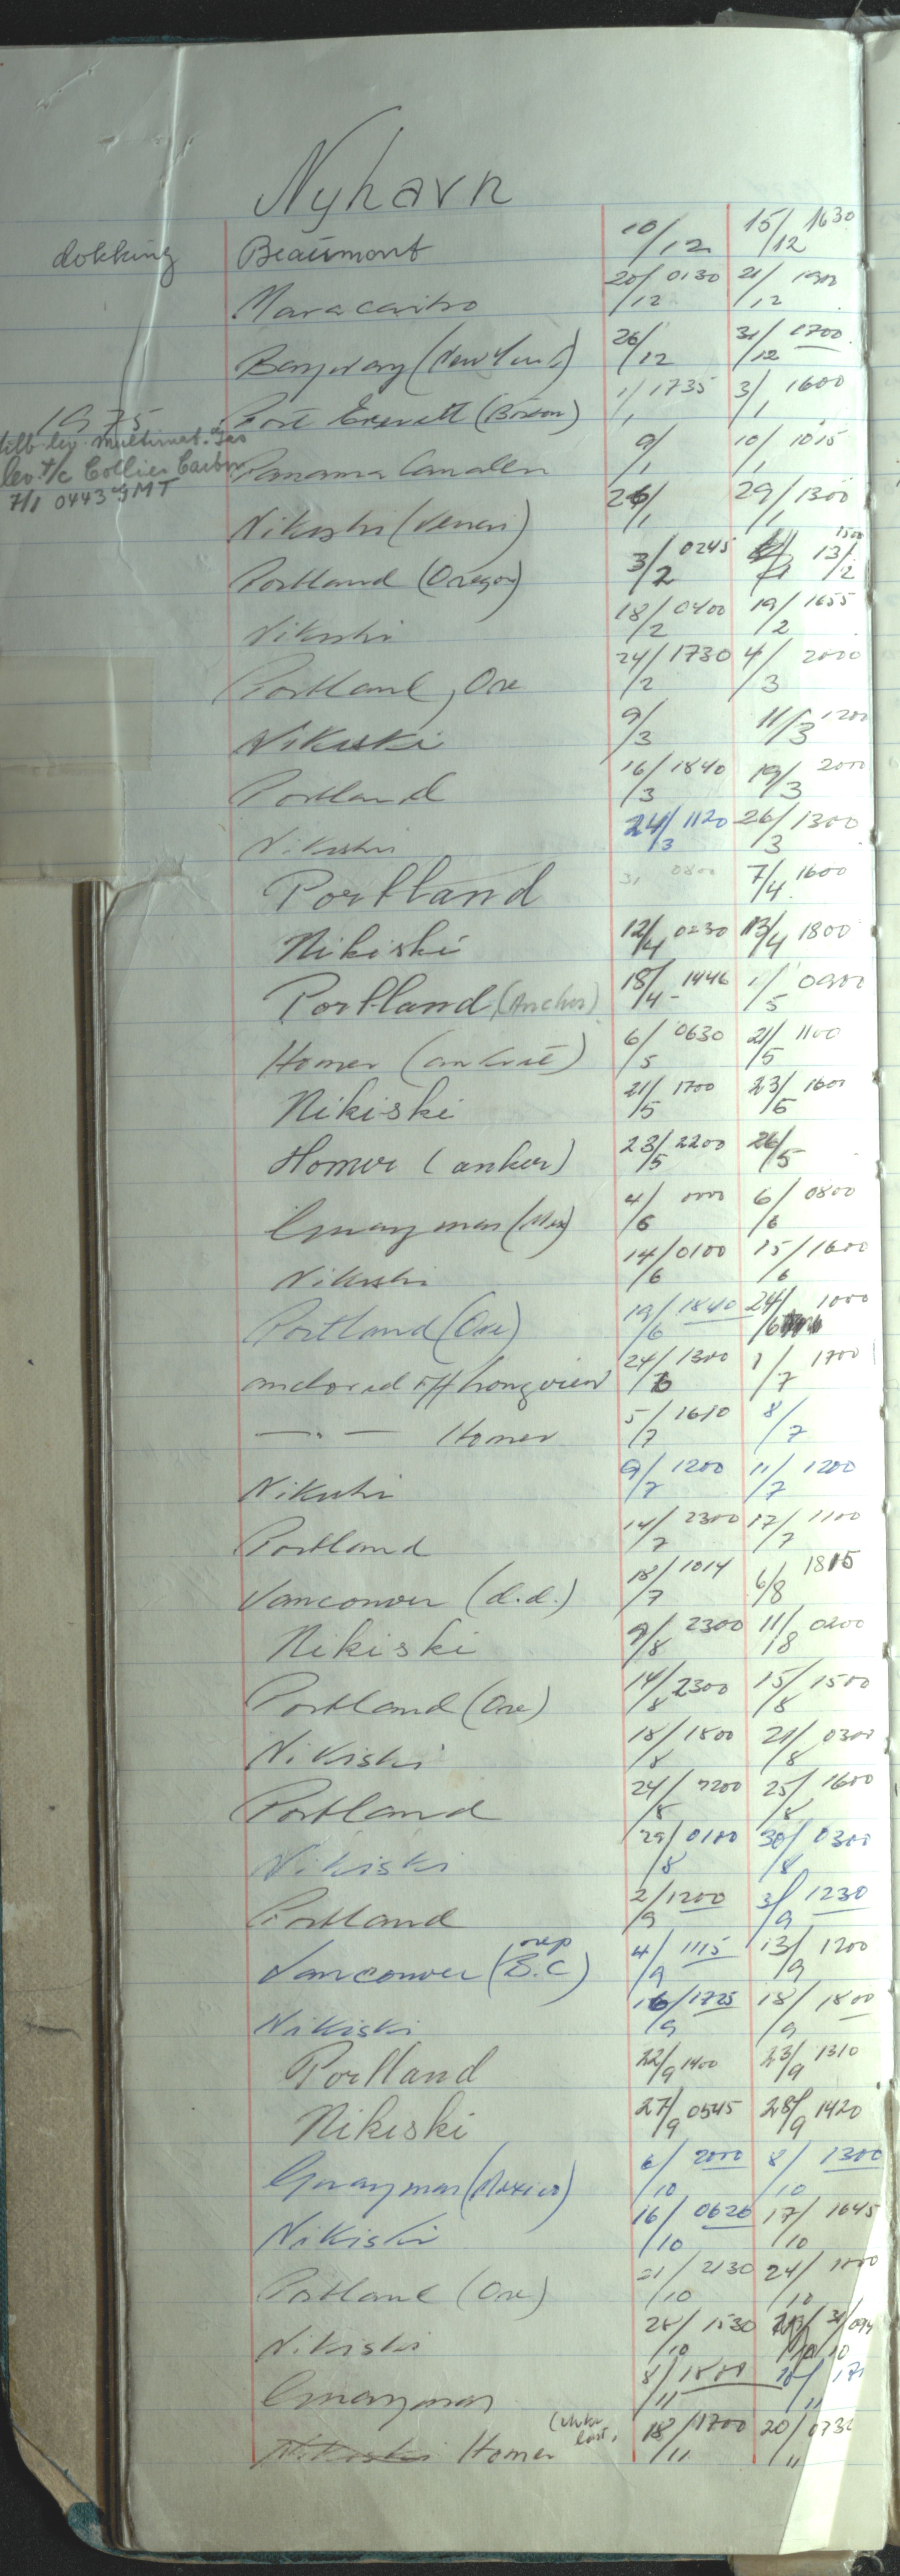 Nyhavn
dokking Beaumont 10/12 15/12 1630
Maracaibo 20/12 0130 21/12
Bayway (New York) 26/12 31/12 1700
1975 Port Everett (Boston) 1/1 1735 3/1 1600
tilb.lev. Multinat. Gas
lev. T/c Collier Carbon
7/1 0443 GMT
Panama Canalen 9/1 10/1 1015
Nikiski (Kenai) 26/1 29/1 1300
Portland (Oregon) 3/2 0245 13/2 1500
Nikiski 18/2 0400 19/2 1655
Portland, Ore 24/2 1730 4/3 2000
Nikiski 9/3 11/3 1200
Portland 16/3 1840 19/3 2000
Nikiski 24/3 1120 26/3 1300
Portland 31 0800 7/4 1600
Nikiski 12/4 0230 13/4 1800
Portland (Anchor) 18/4 - 1446 1/5 0900
Homer 6/5 0630 21/5 1100
Nikiski 21/5 1700 23/5 1600
Homer (anker) 23/5 2200 26/5
Guaymas (Mex) 4/6 6/6 0800
Nikiski 14/6 0100 15/6 1600
Portland (Ore) 19/6 1840 24/6 1000
anchored off Longview 24/6 1300 1/7 1700
— . — Homer 5/7 1610 8/7
Nikiski 9/7 1200 11/7 1200
Portland 14/7 2300 17/7 1100
Vancouver (d.d.) 18/7 1014 6/8 1815
Nikiski 9/8 2300 11/8 0200
Portland (Ore) 14/8 2300 15/8 1500
Nikiski 18/8 1800 21/8 0300
Portland 24/8 2200 25/8 1600
Nikiski 29/8 0100 30/8 0300
Portland 2/9 1200 3/9 1230
Vancouver (B.C) rep 4/9 1115 13/9 1200
Nikiski 16/9 1725 18/9 1800
Portland 22/9 1400 23/9 1310
Nikiski 27/9 0545 28/9 1420
Guaymas (Mexico) 6/10 2000 8/10 1300
Nikiski 16/10 0620 17/10 1645
Portland (Ore) 21/10 2130 24/10 1000
Nikiski 28/10 1530 31/10
Guaymas 8/11 1800 10/11
Nikiski Homer 18/11 1700 20/11